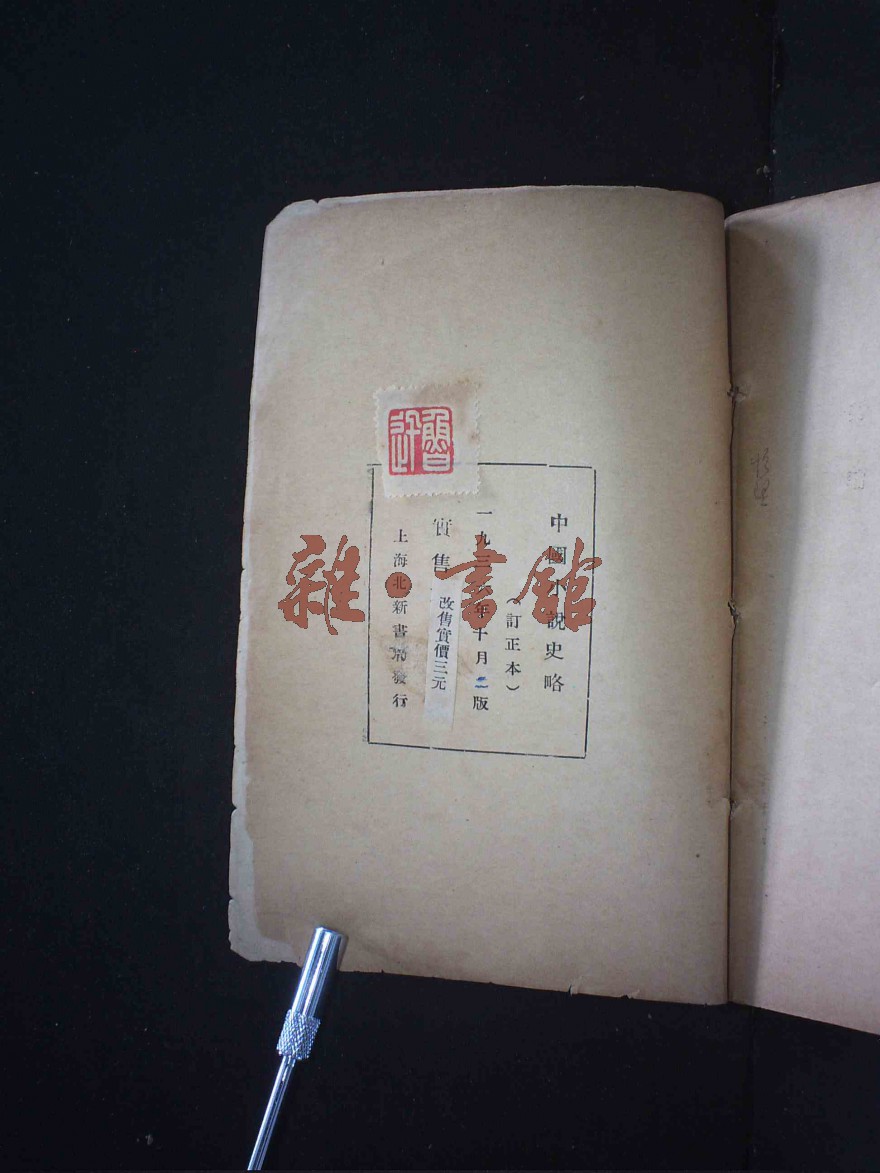 中國小說史略
（訂正本）
一九三年十月二版
實售
改售實價三元
上海北新書局發行
魯迅
雜·書館